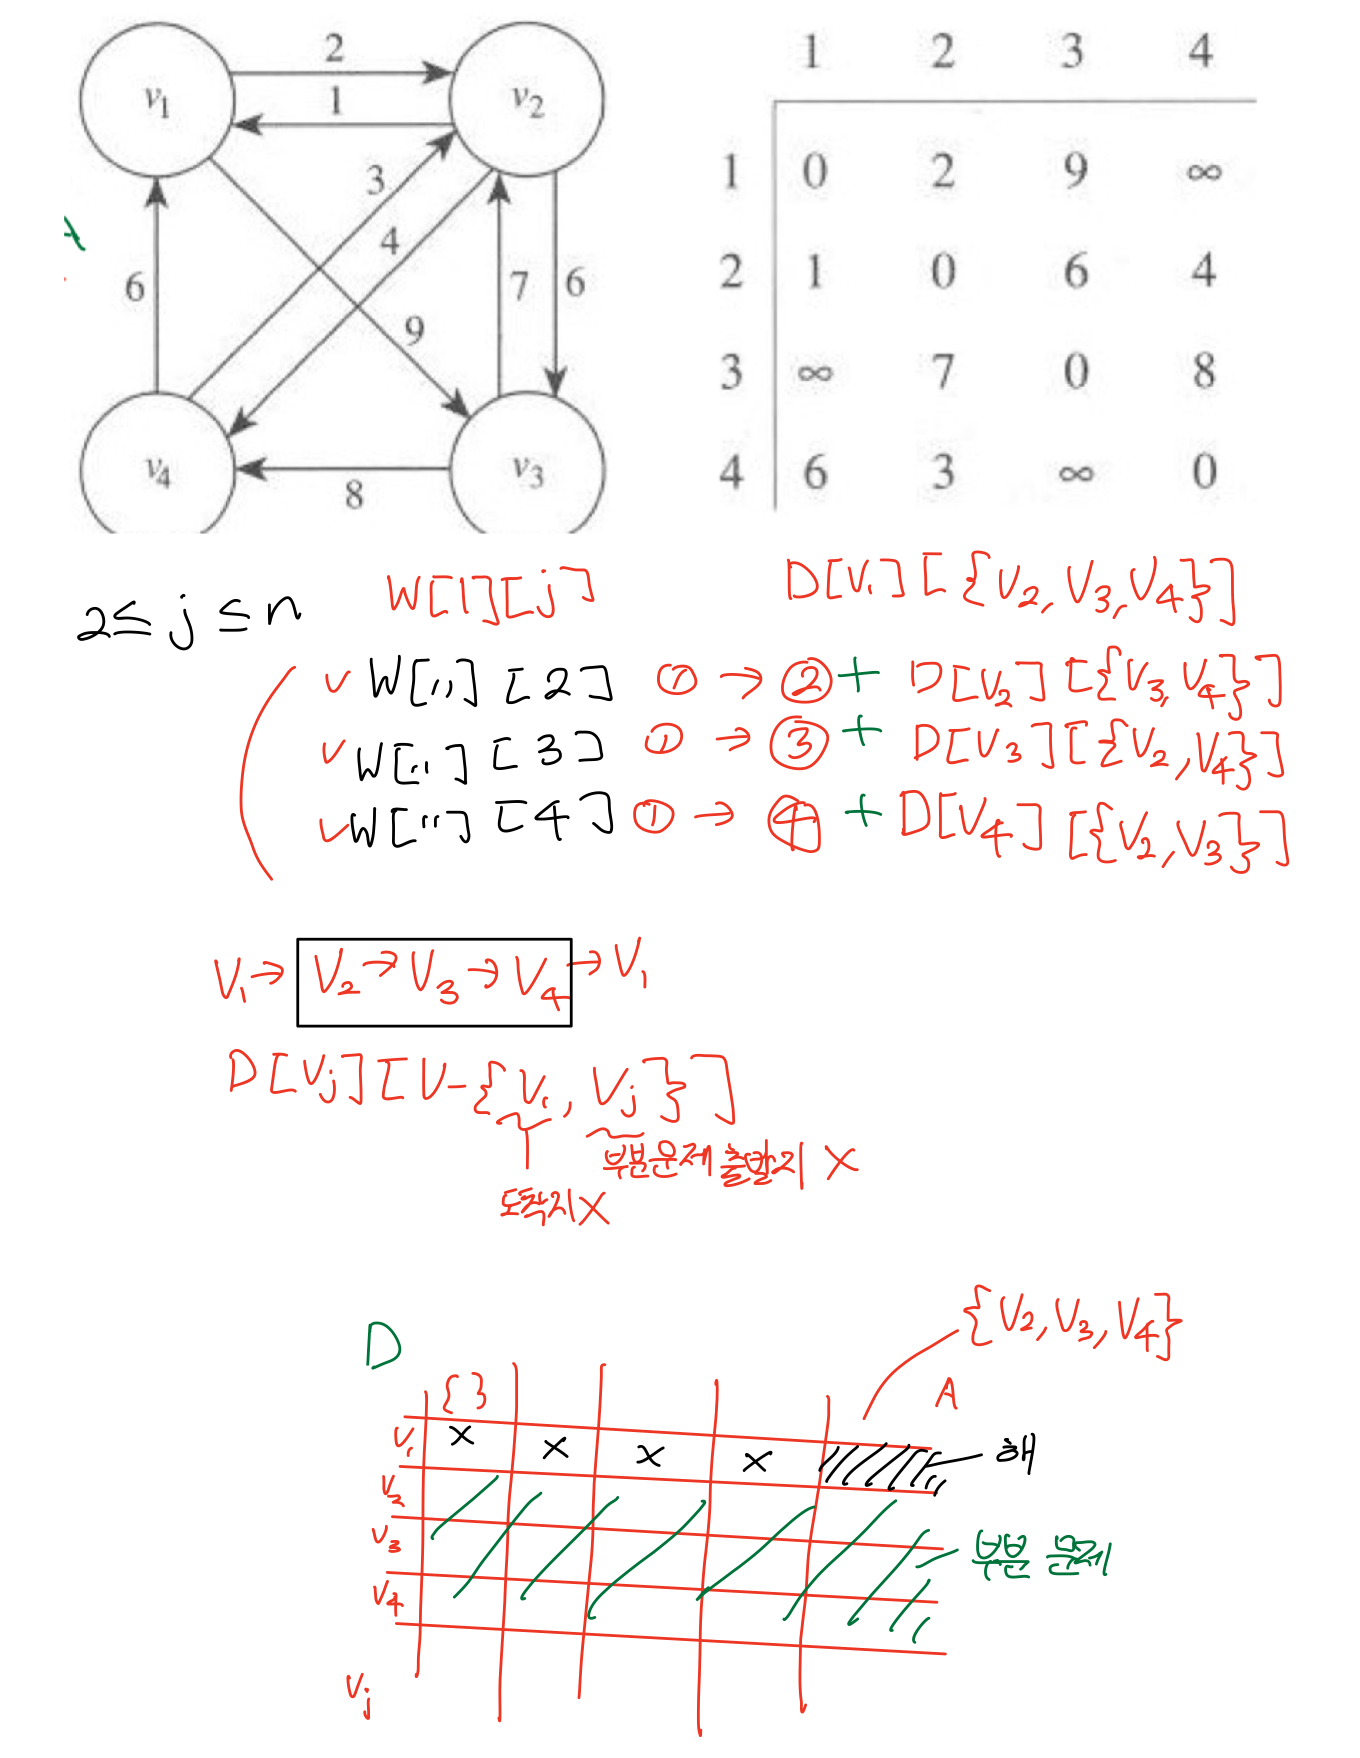 2
v1 v2
1
3
4
6 7 6
9
v4 v3
8
1 2 3 4
1 0 2 9 ∞
2 1 0 6 4
3 ∞ 7 0 8
4 6 3 ∞ 0
2≤ j ≤ n W[1][j] D[V1][{V2, V3, V4}]
∨ W[1][2] ① → ② + D[V2][{V3, V4}]
∨ W[1][3] ① → ③ + D[V3][{V2, V4}]
∨ W[1][4] ① → ④ + D[V4][{V2, V3}]
V1 → V2 → V3 → V4 → V1
D[Vj][V-{V1, Vj}]
부분문제 출발지 X
도착지 X
{V2, V3, V4}
D
{ } A
V1 x x x x 해
V2
V3 부분 문제
V4
Vj